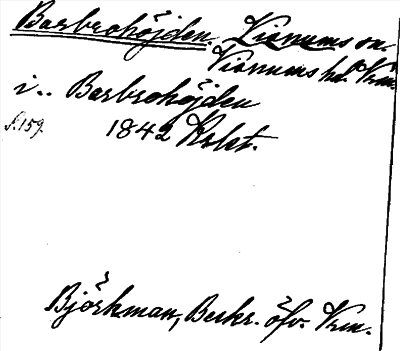 Barbrohöjden. Visnums sn.
Visnums hd. Vrm.
i.. Barbrohöjden
S. 159. 1842 Kskt.
Björkman, Beskr. öfv. Vrm.